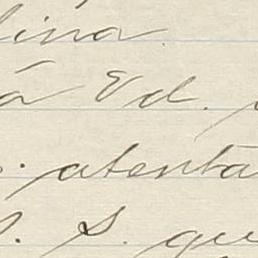 lina
á Vd.
atenta
S. S. que